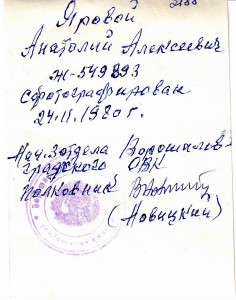 Яровой
Анатолий Алексеевич
Ж-549893
сфотографирован
24.11.1980 г.
Нач. 3 отдела Ворошилов-
градского ОВК
Полковник
(Новицкий)